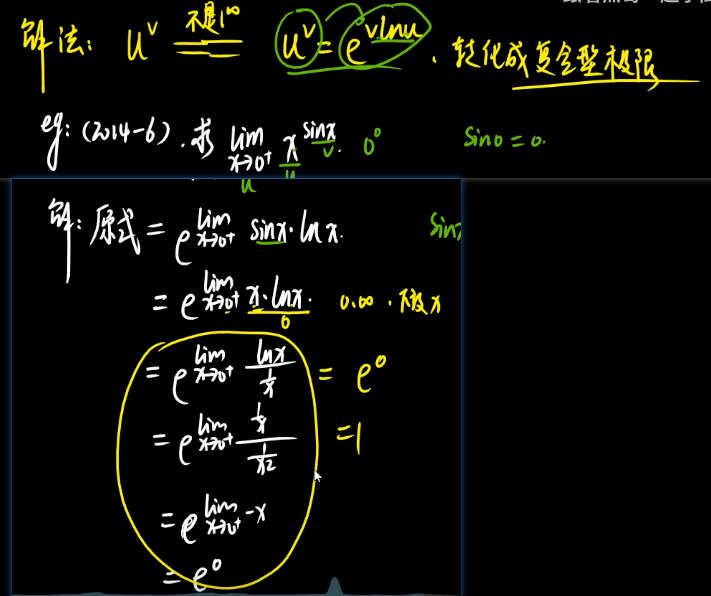 解法: u^v 不是1^∞ u^v = e^{vlnu}, 转化成复合型极限
eg: (2014-6). 求 lim x→0⁺ x^{sinx}. 0⁰ sin0 = 0.
u v
u
解: 原式 = e^{lim x→0⁺ sinx·lnx}. sin
= e^{lim x→0⁺ x·lnx}. 0·∞
0
= e^{lim x→0⁺ lnx/(1/x)} = e⁰
= e^{lim x→0⁺ (1/x)/(1/x2)} = 1
= e^{lim x→0⁺ -x}
= e⁰